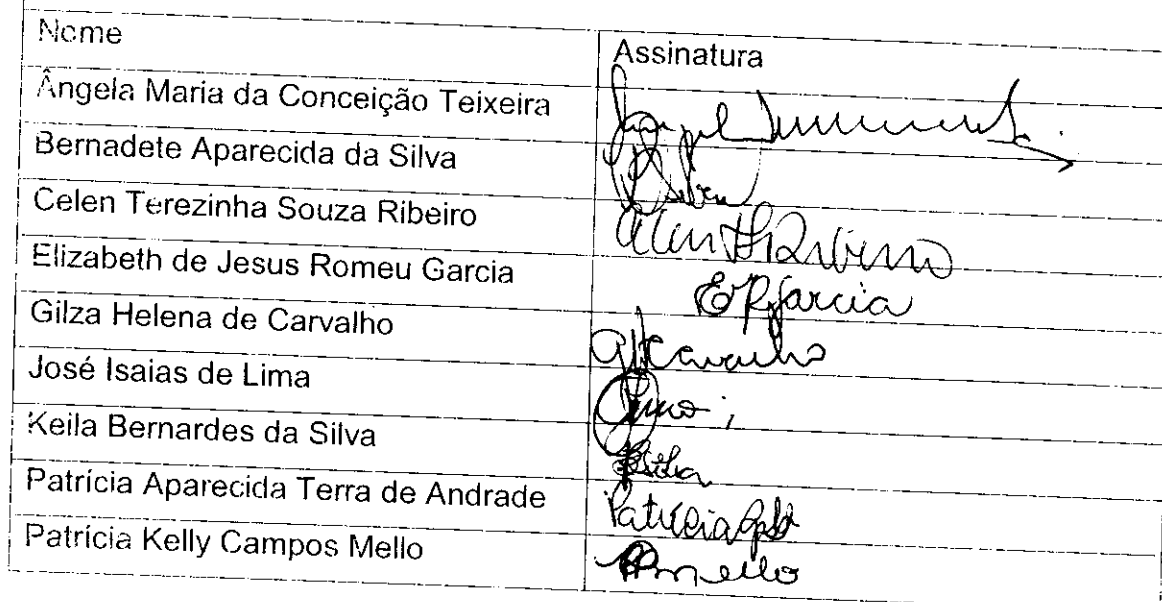 Nome Assinatura
Ângela Maria da Conceição Teixeira
Bernadete Aparecida da Silva
Celen Terezinha Souza Ribeiro
Elizabeth de Jesus Romeu Garcia ERJGarcia
Gilza Helena de Carvalho GHCarvalho
José Isaias de Lima
Keila Bernardes da Silva
Patrícia Aparecida Terra de Andrade Patrícia
Patrícia Kelly Campos Mello